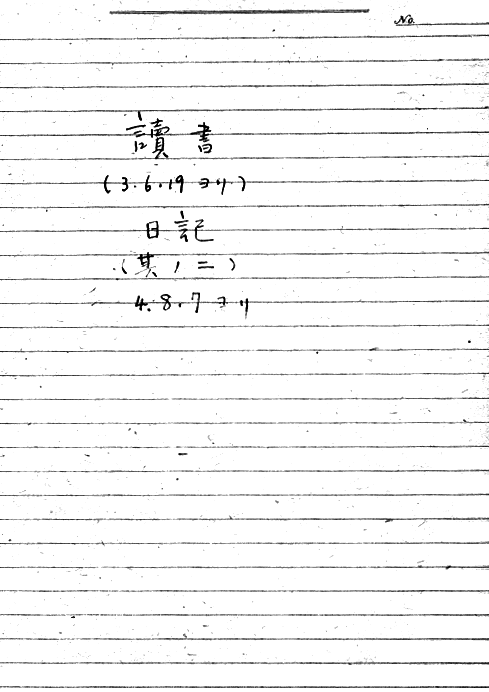 No.
讀書
(3.6.19 ヨリ)
日記
(其ノ二)
4.8.7 ヨリ